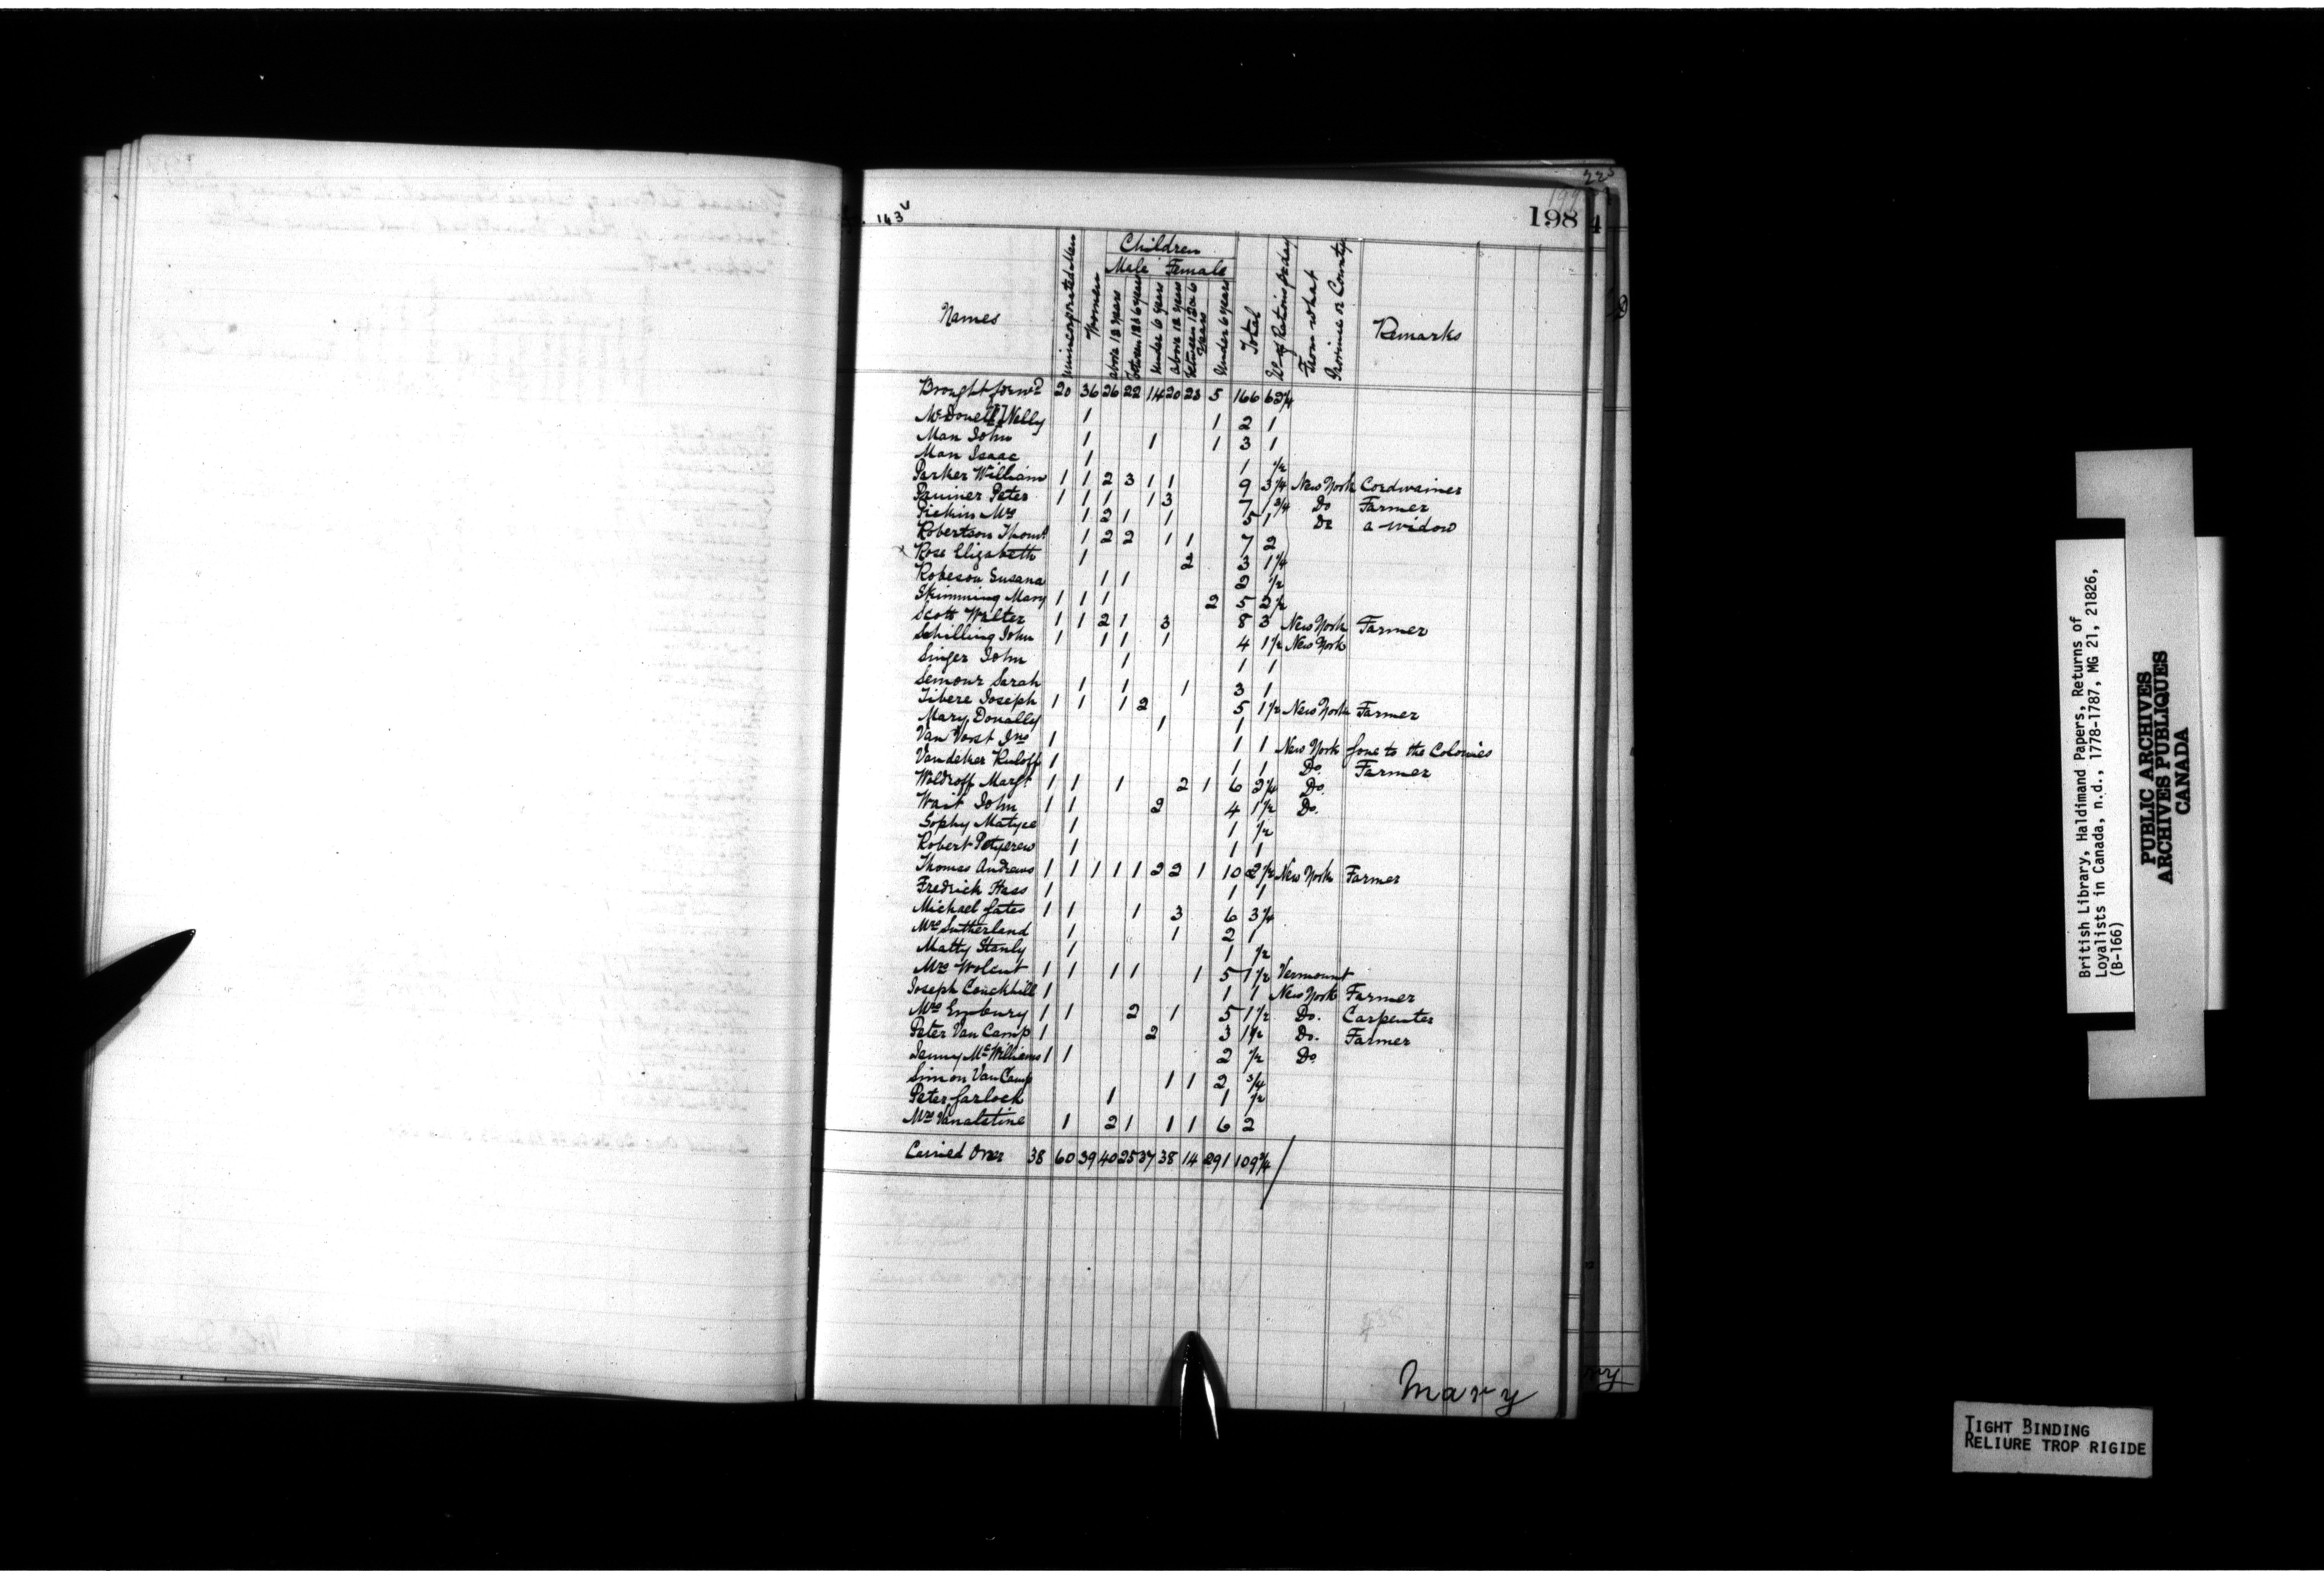 223
198
163
Children
Male Female
Names
Unincorporated Men
Women
above 12 years
between 12 & 6 years
Under 6 years
above 12 years
between 12 & 6 Years
Under 6 years
Total
No of Rations pr day
From what Province or County
Remarks
Brought forwd 20 36 26 22 14 20 23 5 166 62 3/4
McDonell Nelly 1 1 2 1
Man John 1 1 1 3 1
Man Isaac 1 1 1/2
Parker William 1 1 2 3 1 1 9 3 1/4 New York Cordwainer
Pruiner Peter 1 1 1 1 3 7 1 3/4 Do Farmer
Pickin Mrs 1 2 1 1 5 1 Do a widow
Robertson Thoms 1 2 2 1 1 7 2
Rose Elizabeth 1 2 3 1 1/4
Robeson Susana 1 1 2 1/2
Skimming Mary 1 1 1 2 5 2 1/2
Scott Walter 1 1 2 1 3 8 3 New York Farmer
Schilling John 1 1 1 1 4 1 1/2 New York
Singer John 1 1 1
Semour Sarah 1 1 1 3 1
Tibere Joseph 1 1 1 2 5 1 1/2 New York Farmer
Mary Donally 1 1
Van Vorst Jno 1 1 1 New York gone to the Colonies
Vandeker Ruloff 1 1 1 Do. Farmer
Woldroff Margt 1 1 1 2 1 6 2 1/4 Do.
Wait John 1 1 2 4 1 1/2 Do.
Sophy Matyce 1 1 1/2
Robert Petycrew 1 1 1
Thomas Andrews 1 1 1 1 1 2 2 1 10 2 1/2 New York Farmer
Fredrick Hass 1 1 1
Michael Gates 1 1 1 3 6 3 1/4
Mrs Sutherland 1 1 2 1
Matty Stanly 1 1 1/2
Mrs Wolcut 1 1 1 1 1 5 1 1/2 Vermount
Joseph Conckhill 1 1 1 New York Farmer
Mrs Embury 1 1 2 1 5 1 1/2 Do. Carpenter
Peter Van Camp 1 2 3 1 1/2 Do. Farmer
Janny McWilliams 1 1 2 1/2 Do
Simon Van Camp 1 1 2 3/4
Peter Garlock 1 1 1/2
Mrs Vanalstine 1 2 1 1 1 6 2
Carried Over 38 60 39 40 25 37 38 14 291 109 3/4
Mary
British Library, Haldimand Papers, Returns of
Loyalists in Canada, n.d., 1778-1787, MG 21, 21826,
(B-166)
PUBLIC ARCHIVES
ARCHIVES PUBLIQUES
CANADA
TIGHT BINDING
RELIURE TROP RIGIDE